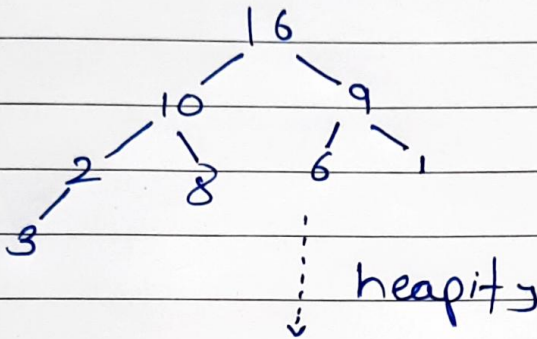 16
10 9
2 8 6 1
3
heapify